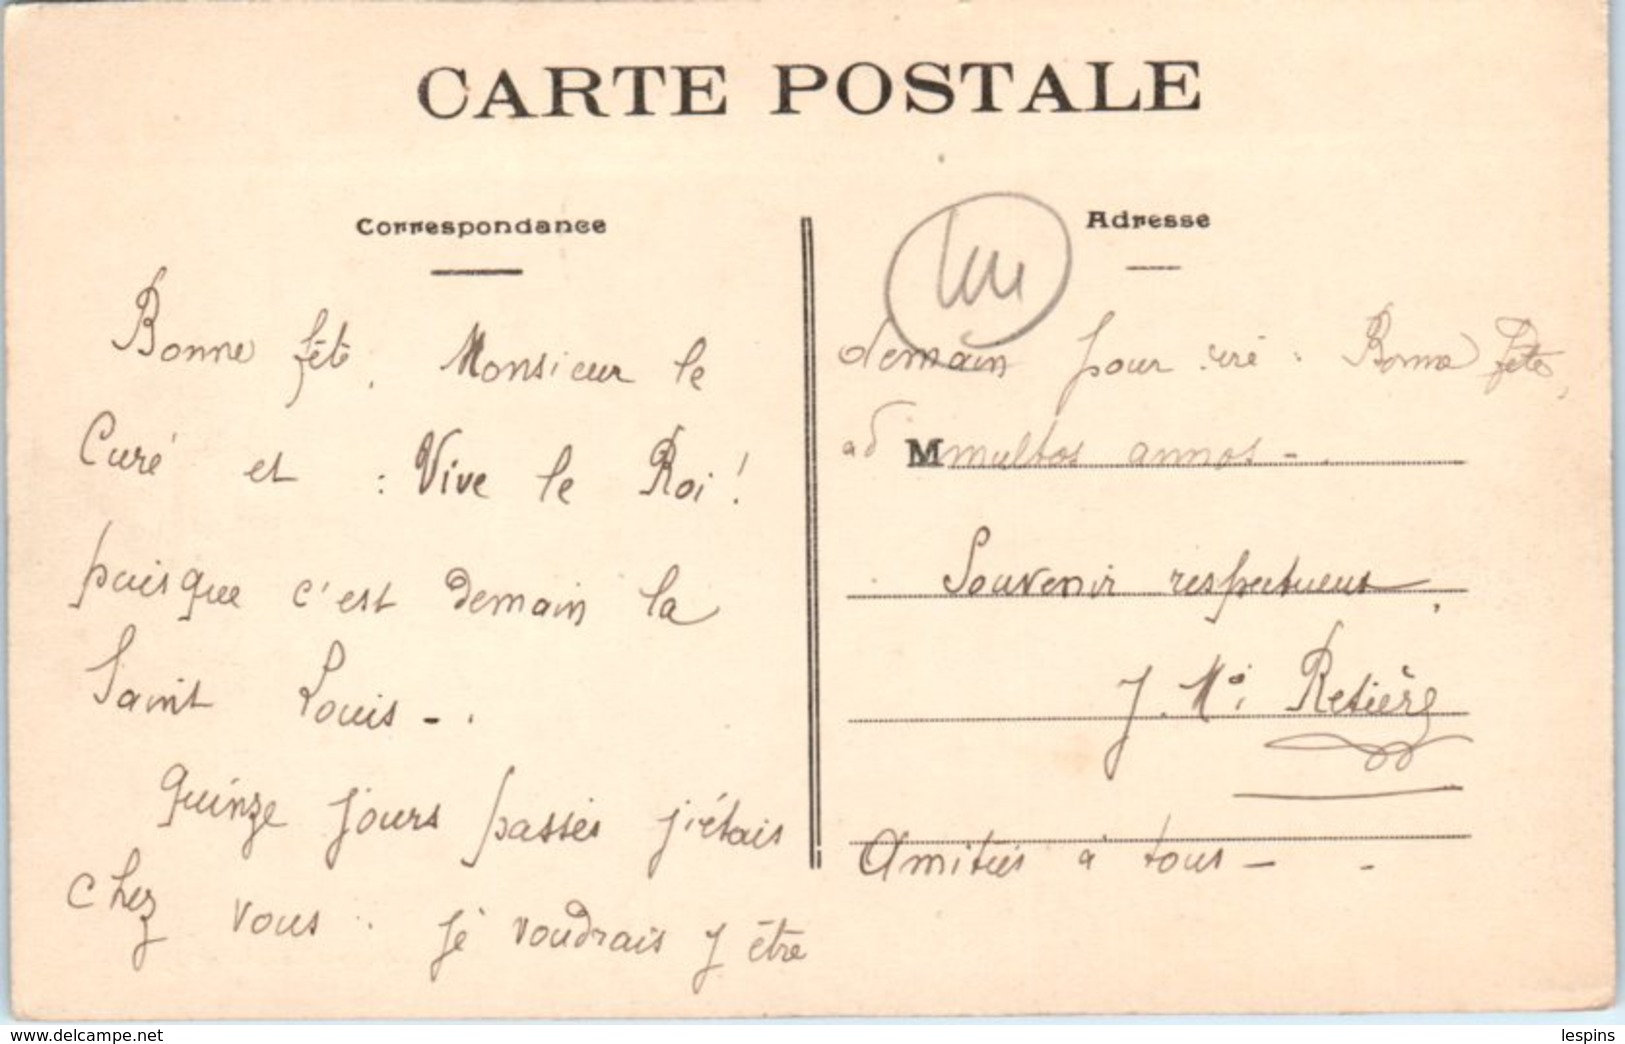 CARTE POSTALE
Correspondance
Bonne fête, Monsieur le
Curé et : Vive le Roi !
puisque c'est demain la
Saint Louis - .
Quinze jours passés j'étais
chez vous . je voudrais y être
Adresse
demain pour : Bonne fête,
ad M multos annos - .
Souvenir respectueux,
J. Retière
Amitiés à tous - -
www.delcampe.net
lespins